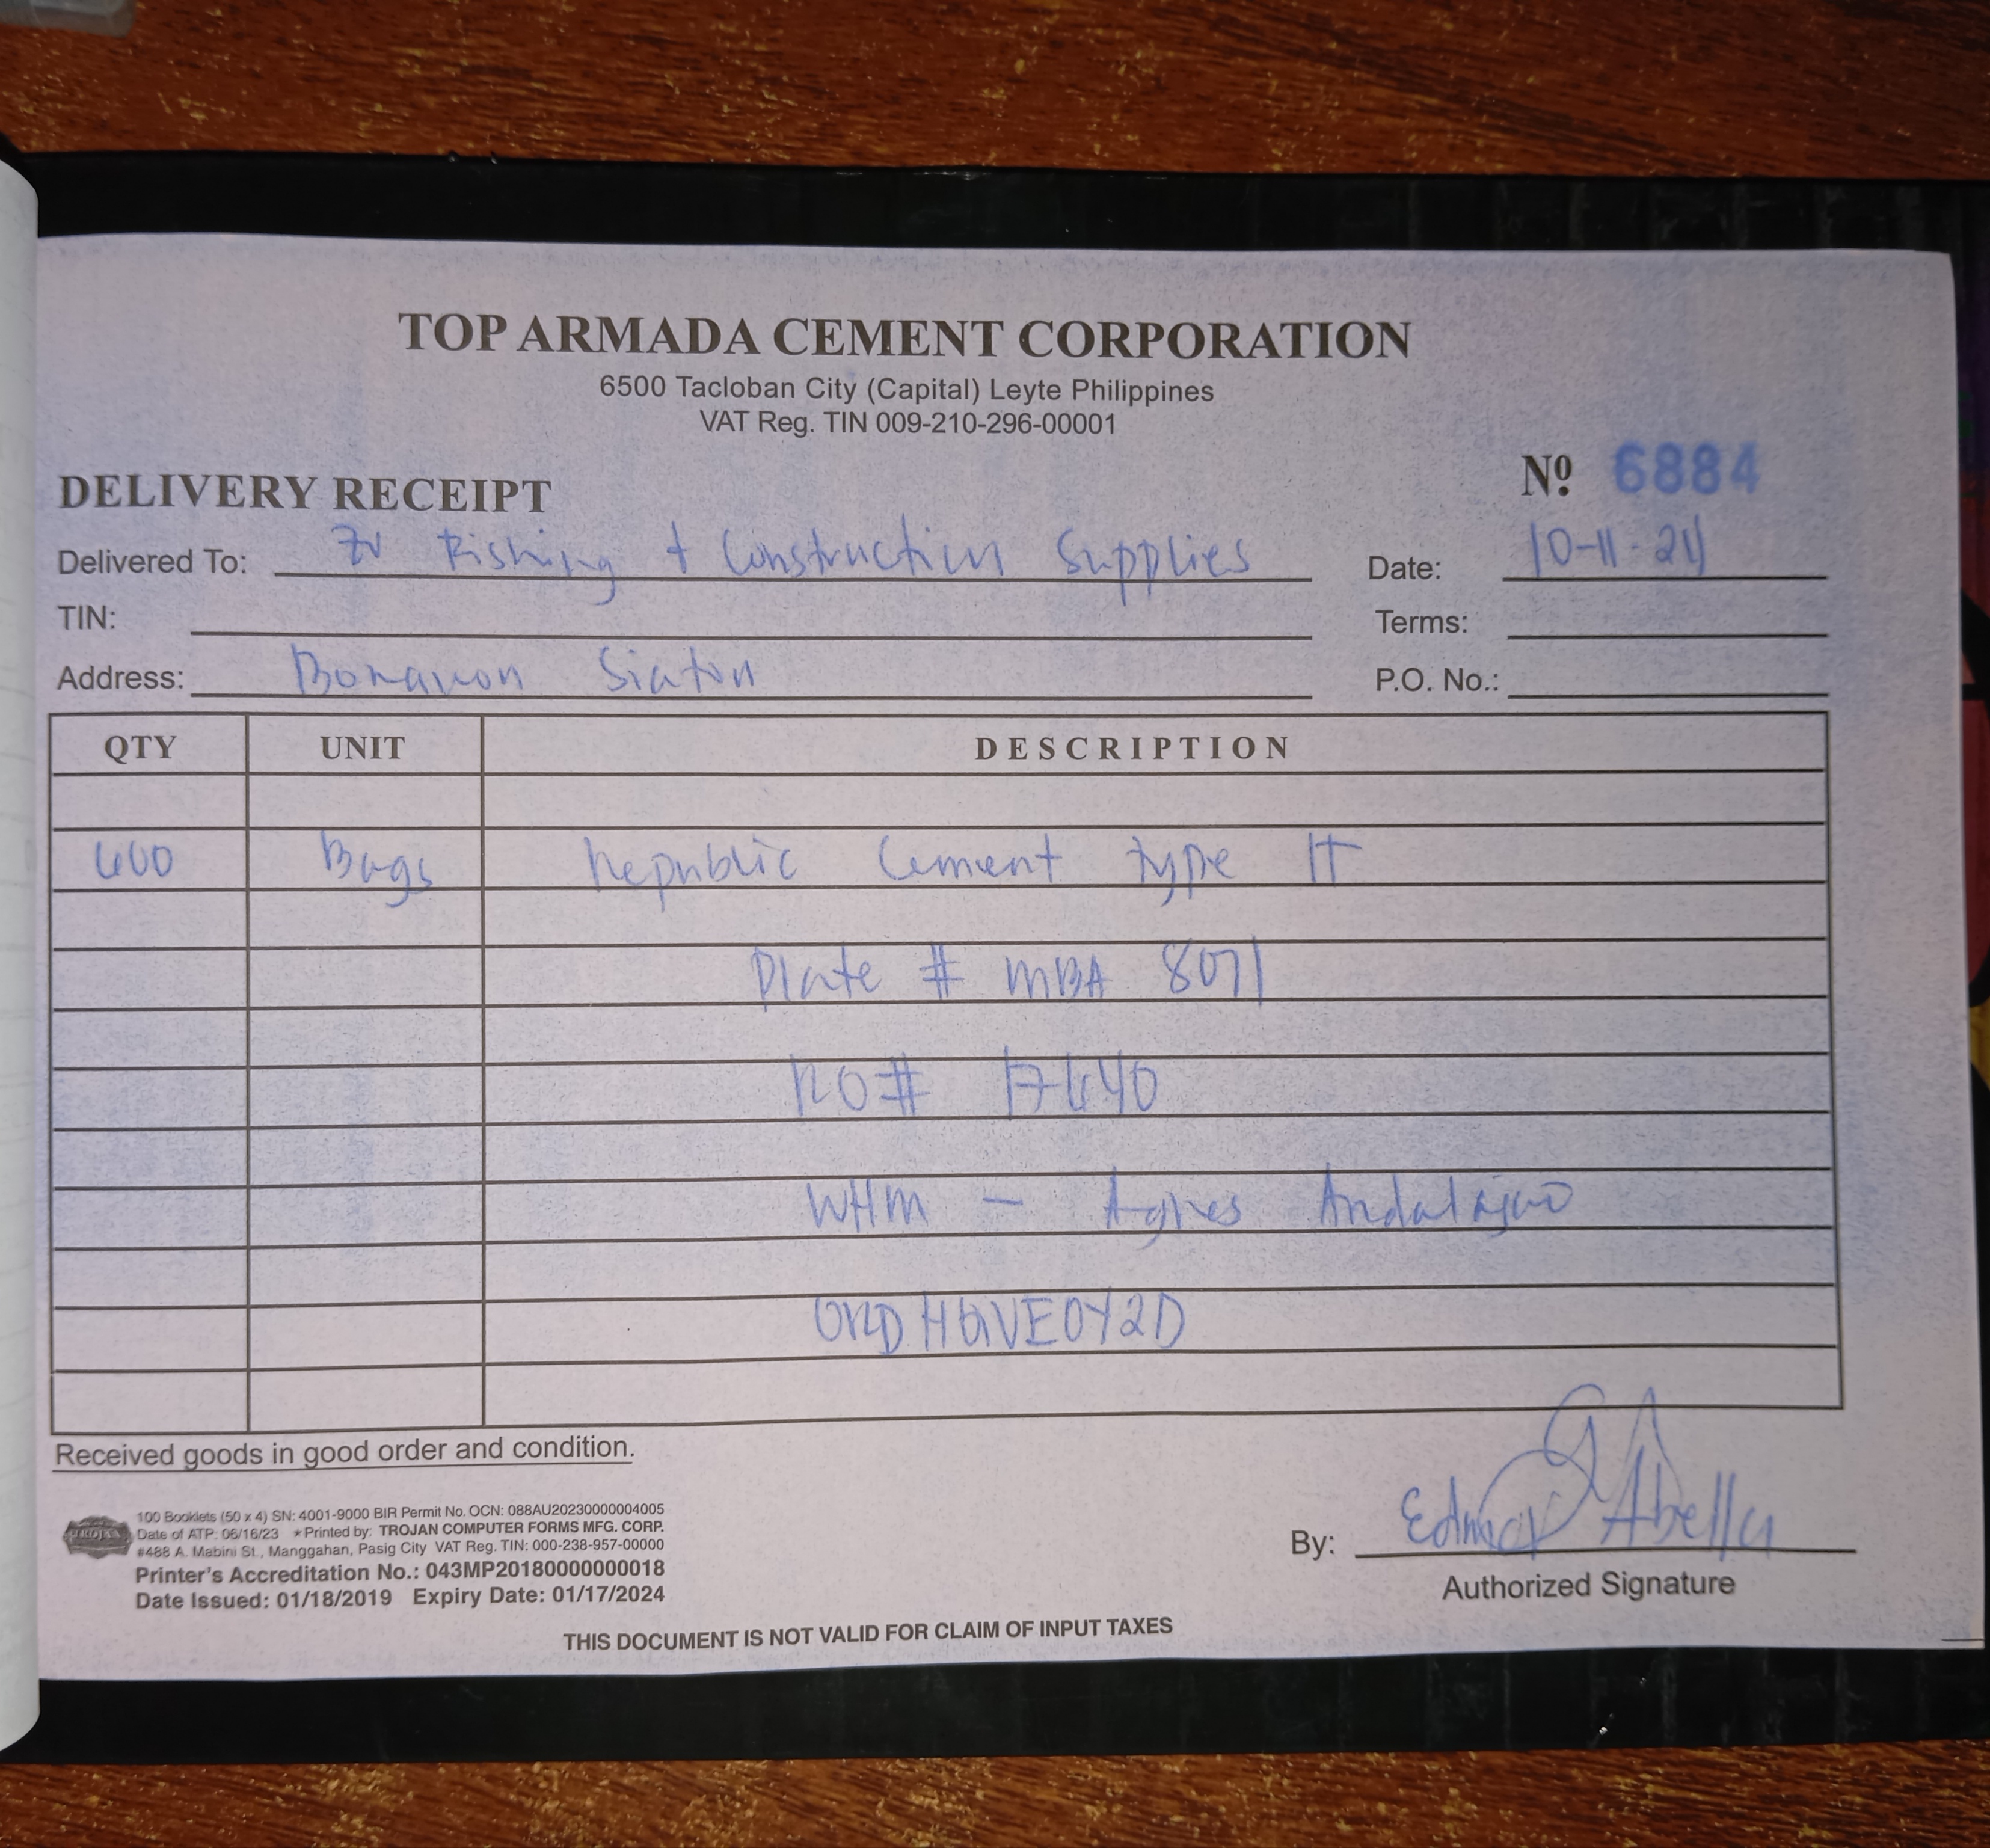 TOP ARMADA CEMENT CORPORATION
6500 Tacloban City (Capital) Leyte Philippines
VAT Reg. TIN 009-210-296-00001
DELIVERY RECEIPT Nº 6884
Delivered To: ZV Fishing + Construction Supplies Date: 10-11-24
TIN: Terms:
Address: Bonawon Siaton P.O. No.:
QTY UNIT DESCRIPTION
600 Bags Republic Cement type 1T
Plate # MBA 8071
RO# 17640
WHM - Agnes Andalajao
ORD.HGVE0Y2D
Received goods in good order and condition.
TROJAN
100 Booklets (50 x 4) SN: 4001-9000 BIR Permit No. OCN: 088AU20230000004005
Date of ATP: 06/16/23 ★Printed by: TROJAN COMPUTER FORMS MFG. CORP.
#488 A. Mabini St., Manggahan, Pasig City VAT Reg. TIN: 000-238-957-00000
Printer's Accreditation No.: 043MP20180000000018
Date Issued: 01/18/2019 Expiry Date: 01/17/2024
By: Edmar Abella
Authorized Signature
THIS DOCUMENT IS NOT VALID FOR CLAIM OF INPUT TAXES